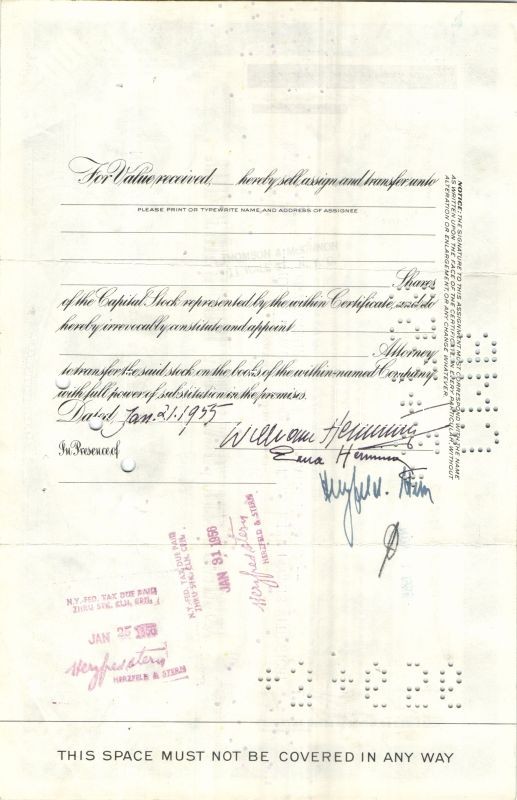 For Value received, hereby sell, assign and transfer unto
PLEASE PRINT OR TYPEWRITE NAME, AND ADDRESS OF ASSIGNEE
THOMSON & McKINNON
Shares
of the Capital Stock represented by the within Certificate, and do
hereby irrevocably constitute and appoint
Attorney
to transfer the said stock on the books of the within-named Company
with full power of substitution in the premises.
Dated Jan. 21. 1955
William Hemming
In Presence of
Hemming
NOTICE: THE SIGNATURE TO THIS ASSIGNMENT MUST CORRESPOND WITH THE NAME
AS WRITTEN UPON THE FACE OF THE CERTIFICATE IN EVERY PARTICULAR WITHOUT
ALTERATION OR ENLARGEMENT, OR ANY CHANGE WHATEVER.
Herzfeld & Stern
N.Y.-FED. TAX DUE PAID
THRU STK. CLR. CRN.
JAN 31 1950
Herzfeld & Stern
HERZFELD & STERN
N.Y.-FED. TAX DUE PAID
THRU STK. CLR.
JAN 25
Herzfeld & Stern
HERZFELD & STERN
THIS SPACE MUST NOT BE COVERED IN ANY WAY